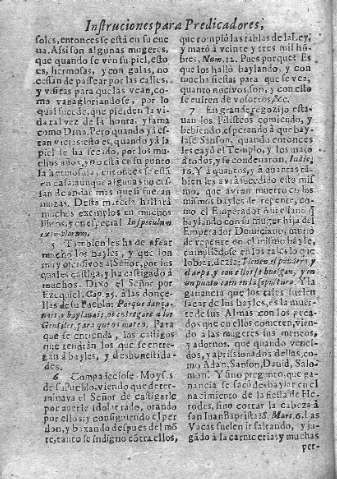 Instruciones para Predicadores,
soles, entonces se está en su cueua.
Assi son algunas mugeres,
que quando se ven su piel, esto
es, hermosas, y con galas, no
cessan de passear por las calles,
y visitas para que las vean, como
vanagloriandose, por lo
qual sucede, que pierden la vida
tal vez de la honra, y fama
como Dina. Pero quando ya están
viejas esto es, quando ya la piel
se ha secado, por los muchos
años, y no está en su punto
la hermosura, entonces se está
en casa, aunque algunas no cessan
de andar mas que si fueran
moças. Desta materia hallará
muchos exemplos en muchos
libros, y en especial In speculum
exemplorum.
Tambien les ha de afear
mucho los bayles, y que son
muy ofensivos al Señor, por los
quales castiga, y ha castigado à
muchos. Dixo el Señor por
Ezequiel, Cap. 25. à las donzellas
de su Pueblo: Porque dançays
y baylauais, os entregaré à los
Gentiles, para que os maten. Para
que se entienda, los castigos
que tendrán los que se entregan
à bayles, y deshonestidades.
6 Compadeciose Moyses
de su Pueblo, viendo que determinava
el Señor de castigarle
por averle idolatrado, orando
por ellos, y consiguiendo el perdon,
y baxando despues del monte,
tanto se indignò contra ellos,
que rompiò las tablas de la Ley,
y matò à veinte y tres mil hombres,
Num. 12. Pues porque? Es
que los hallò baylando, y con
muchas fiestas para que se vea,
quanto nociuos son, y con esto
se escusen de votos vios, &c.
7 En grande regozijo estauan
los Filisteos comiendo, y
bebiendo, esperando à que baylasse
Sanson, quando entonces
les cayò el Templo, y los matò
à todos, y se condenaron, Iudic.
16. Y à quantos, y à quantas tambien
les avrà sucedido esto mismo,
que avian muerto en los
mismos bayles de repente, como
el Emperador Aureliano
baylando con su muger hija del
Emperador Domiciano, murió
de repente en el mismo bayle,
cumpliendose en los tales lo que
Iob dize al 21. Tienen el pandero, y
el arpa, y con ellos se huelgan, y en
un punto caen en la sepultura. Y la
ganancia que los tales suelen
sacar de los bayles, es la muerte
de sus Almas con los pecados
que en ellos cometen, viendo
à las mugeres sus meneos,
y adornos, que quando vencidos,
y aprissionados dellas, como
Adan, Sanson, Dauid, Salomon.
Y sino pregunto, que ganancia
se sacò de baylar en el
nacimiento de la fiesta de Herodes,
sino cortar la cabeça à
San Iuan Baptista? Marc. 6. Las
Vacas suelen ir saltando, y jugando
à la carniceria; y muchas
per-